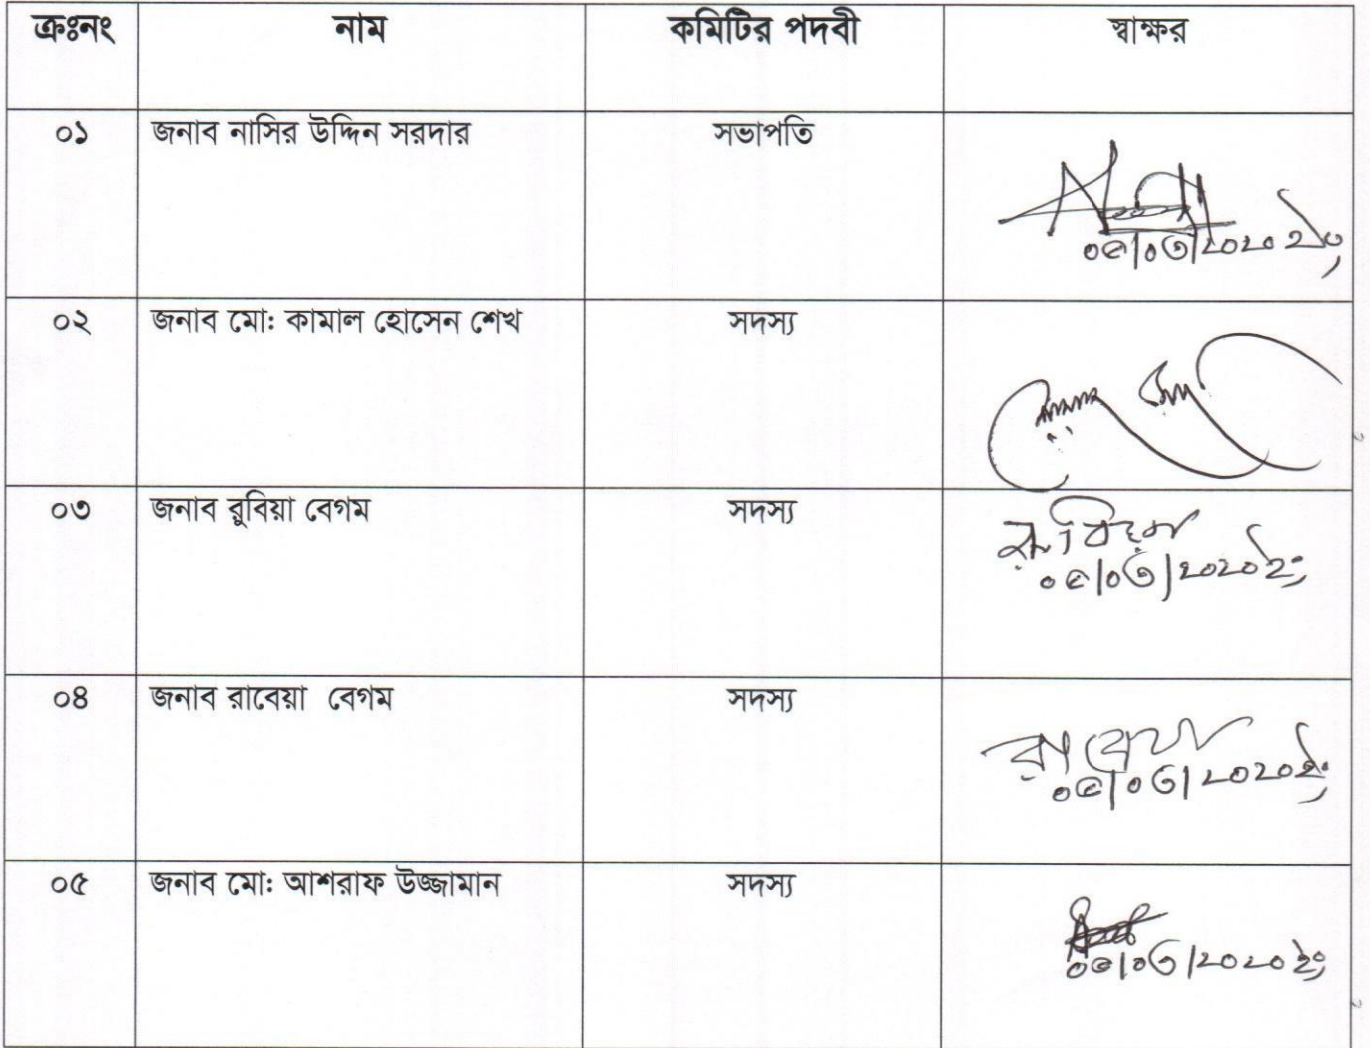 ক্রঃনং নাম কমিটির পদবী স্বাক্ষর
০১ জনাব নাসির উদ্দিন সরদার সভাপতি
০৫/০৩/২০২০ ইং
০২ জনাব মো: কামাল হোসেন শেখ সদস্য
০৩ জনাব রুবিয়া বেগম সদস্য রুবিয়া
০৫/০৩/২০২০ ইং
০৪ জনাব রাবেয়া বেগম সদস্য
রাবেয়া
০৫/০৩/২০২০ ইং
০৫ জনাব মো: আশরাফ উজ্জামান সদস্য
০৫/০৩/২০২০ ইং